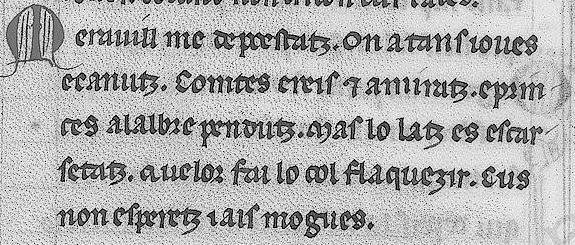 Meravill me depestatz. On atan ioues
ecanutz. Comtes ereis ⁊ amiratz. eprin
ces alalbre pendutz. Mas lo latz es escar
setatz. Auelor fai lo col flaquezir. Eus
non esperetz iais mogues.